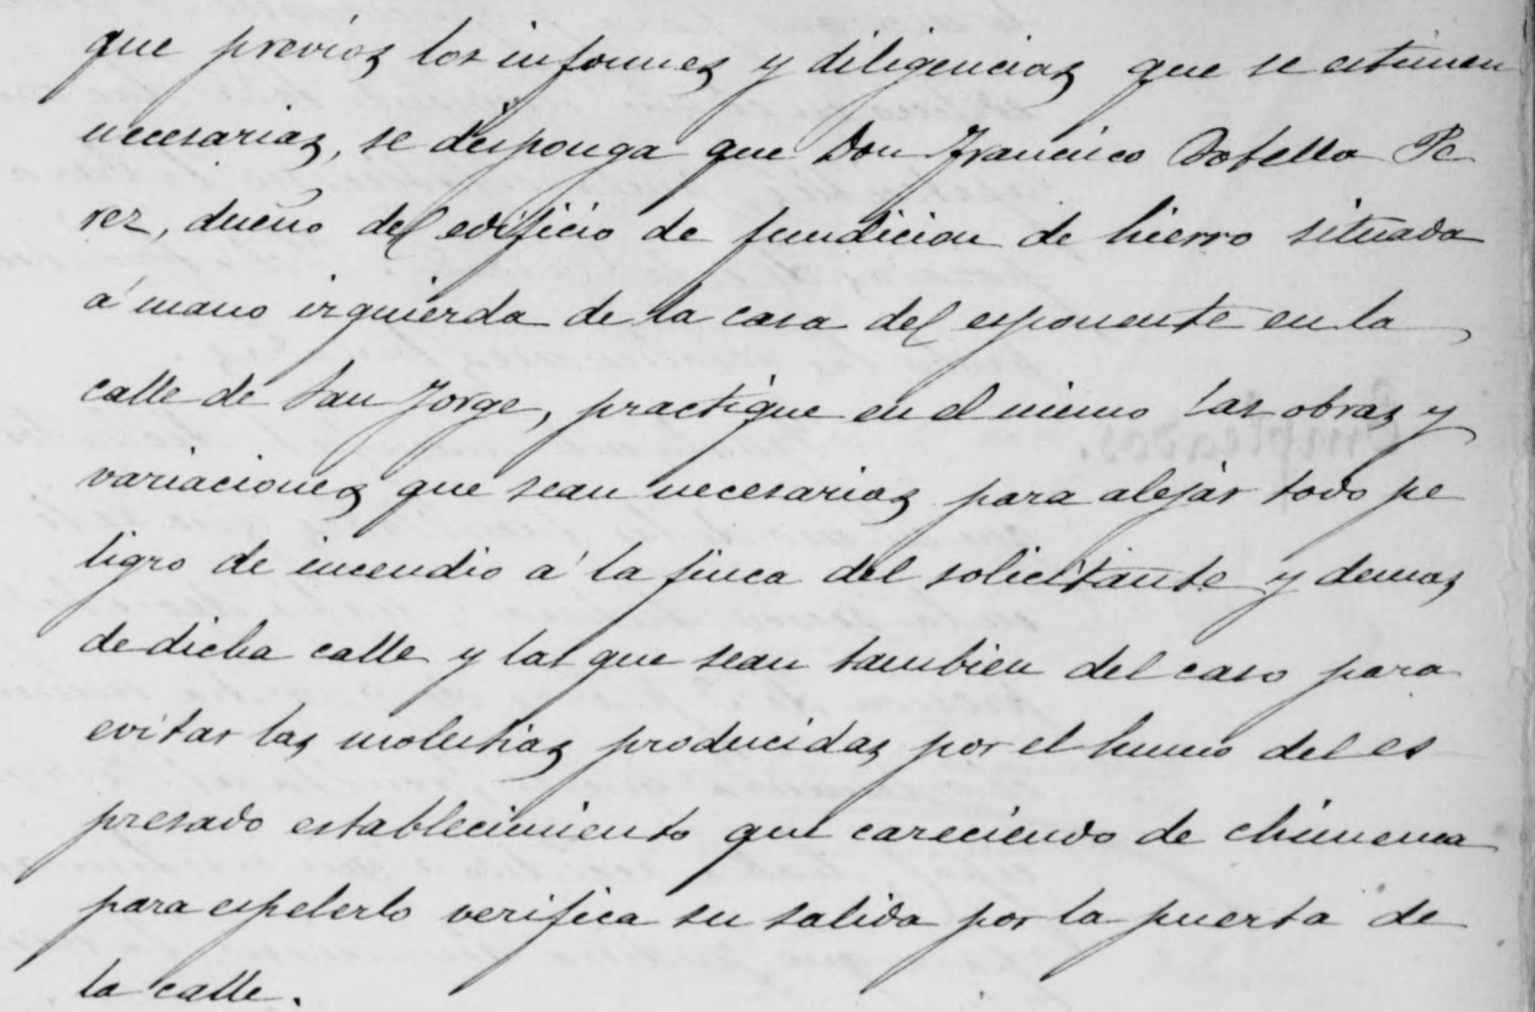 que previos los informes y diligencias que se estimen
necesarias, se disponga que Don Francisco Botella Pe
rez, dueño del edificio de fundicion de hierro situada
á mano izquierda de la casa del esponente en la
calle de San Jorge, practique en el mismo las obras y
variaciones que sean necesarias para alejar todo pe
ligro de incendio á la finca del solicitante y demas
de dicha calle y las que sean tambien del caso para
evitar las molestias producidas por el humo del es
presado establecimiento que careciendo de chimenea
para espelerlo verifica su salida por la puerta de
la calle.